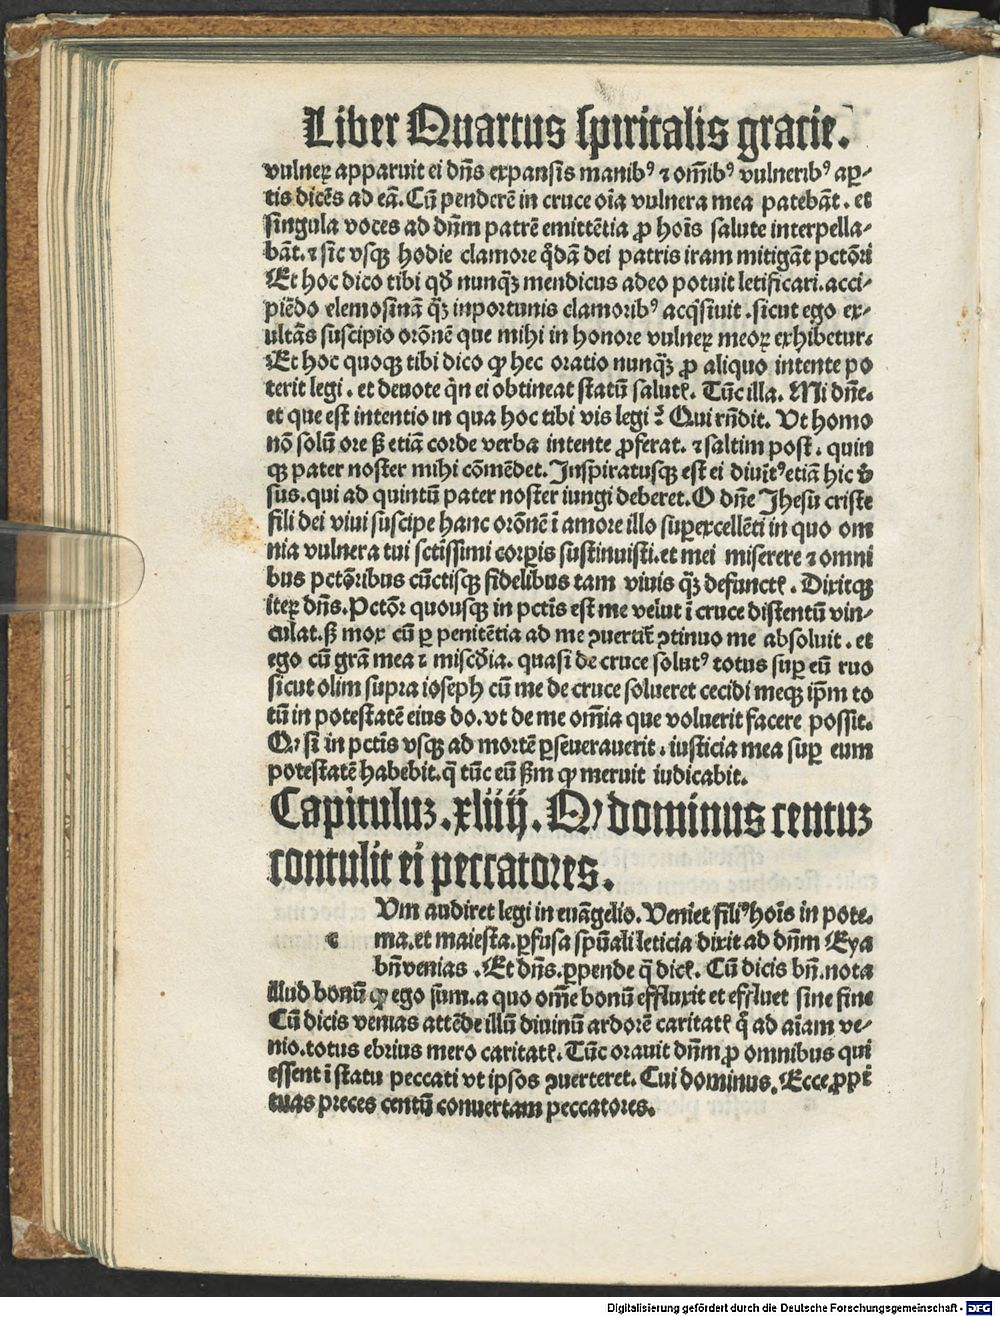 Liber Quartus spiritalis gratie.
vulneꝝ apparuit ei dn̄s expansis manibꝰ ⁊ om̄ibꝰ vulneribꝰ aꝑ-
tis dicēs ad eā. Cū penderē in cruce oīa vulnera mea patebāt. et
singula voces ad dn̄m patrē emittētia ꝓ hoīs salute interpella-
bāt. ⁊ sic vsqꝫ hodie clamore q̄dā dei patris iram mitigāt pctōri
Et hoc dico tibi qď nunqꝫ̄ mendicus adeo potuit letificari. acci-
piēdo elemosinā qꝫ̄ inportunis clamoribꝰ acq̄siuit. sicut ego ex-
ultās suscipio orōnē que mihi in honore vulneꝝ meoꝝ exhibetur.
Et hoc quoqꝫ tibi dico ꝙ hec oratio nunqꝫ̄ ꝓ aliquo intente po
terit legi. et deuote q̄n ei obtineat statū salutꝭ. Tūc illa. Mi dn̄e.
et que est intentio in qua hoc tibi vis legi? Qui rn̄dit. Vt homo
nō solū ore ꝭꝫ etiā corde verba intente ꝓferat. ⁊ saltim post. quin
qꝫ pater noster mihi cōmēdet. Inspiratusqꝫ est ei diuītꝰ etiā hic v̄
sus. qui ad quintū pater noster iungi deberet. O dn̄e Jhesu criste
fili dei viui suscipe hanc orōnē ī amore illo suꝑexcellēti in quo om
nia vulnera tui sctissimi corꝑis sustinuisti. et mei miserere ⁊ omni
bus pctōribus cūctisqꝫ fidelibus tam viuis qꝫ̄ defunctꝭ. Dixitqꝫ
iteꝝ dn̄s. Pctōr quousqꝫ in pctīs est me velut ī cruce distentū vin-
culat. ꝭꝫ mox cū ꝑ penitētia ad me ꝯuertit̄ ꝯtinuo me absoluit. et
ego cū grā mea ⁊ miscďia. quasi de cruce solutꝰ totus suꝑ eū ruo
sicut olim supra ioseph cū me de cruce solueret cecidi meqꝫ ip̄m to
tū in potestatē eius do. vt de me om̄ia que voluerit facere possit.
Qꝫ si in pctīs vsqꝫ ad mortē ꝑseuerauerit. iusticia mea suꝑ eum
potestatē habebit. q̄ tūc eū ẜm ꝙ meruit iudicabit.
Capituluꝫ. xliiij. Qꝫ dominus centuꝫ
contulit ei peccatores.
Vm audiret legi in euāgelio. Veniet filiꝰ hoīs in pote.
c ma. et maiesta. ꝑfusa spūali leticia dixit ad dn̄m Eya
bn̄venias. Et dn̄s. ꝑpende q̄ dicꝭ. Cū dicis bn̄. nota
illud bonū ꝙ ego sum. a quo om̄e bonū effluxit et effluet sine fine
Cū dicis venias attēde illū diuinū ardorē caritatꝭ q̄ ad aīam ve-
nio. totus ebrius mero caritatꝭ. Tūc orauit dn̄m ꝓ omnibus qui
essent ī statu peccati vt ipsos ꝯuerteret. Cui dominus. Ecce ꝓpt̄
tuas preces centū conuertam peccatores.
Digitalisierung gefördert durch die Deutsche Forschungsgemeinschaft - DFG